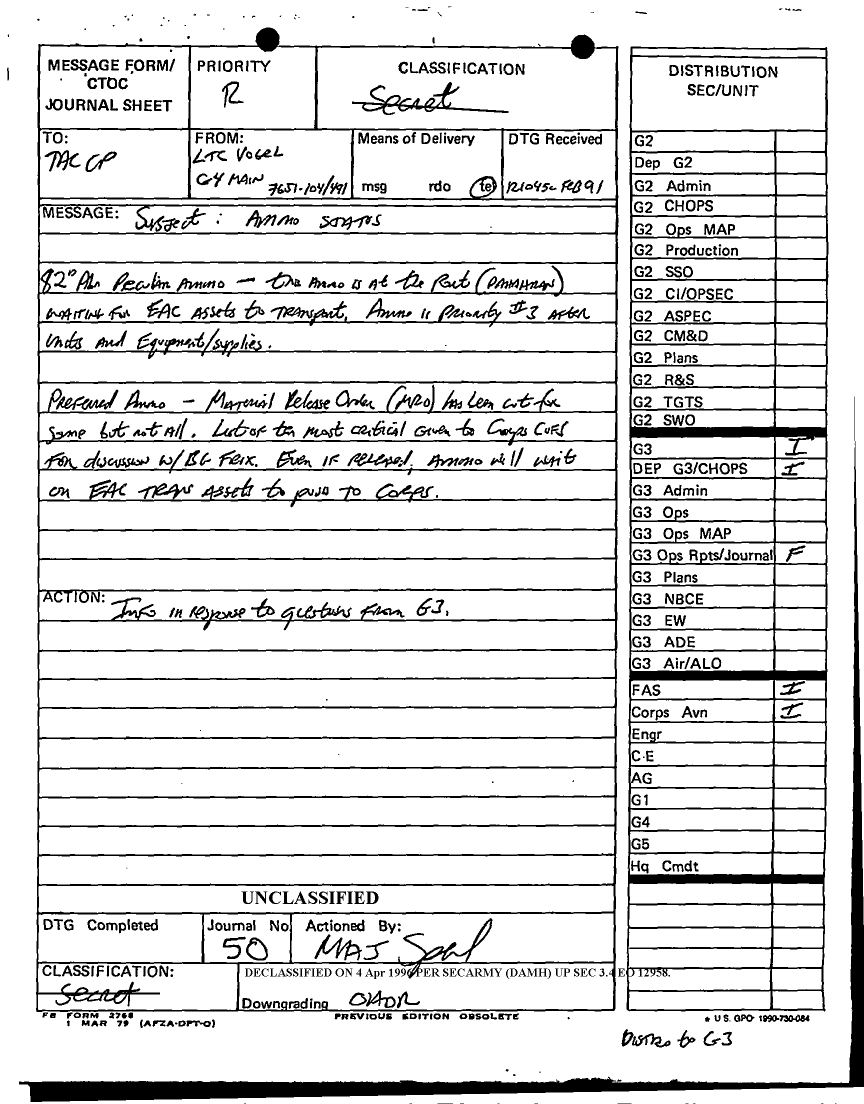 MESSAGE FORM/
CTOC
JOURNAL SHEET
PRIORITY
R
CLASSIFICATION
Secret
TO:
TAC CP
FROM:
LTC VOGEL
G4 MAIN 7651-104/491
Means of Delivery
msg rdo tel
DTG Received
121045C FEB 91
MESSAGE: Subject: Ammo status
82nd Abn Peculiar Ammo — this Ammo is At the Port (DAHAHRAN)
waiting for EAC Assets to transport. Ammo is Priority #3 After
Units and Equipment/supplies.
Preferred Ammo — Material Release Order (MRO) has been cut for
some but not All. List of ten most critical Given to Corps
for discussion w/ BG Frix. Even if released, Ammo will wait
on EAC TRANS Assets to push to Corps.
ACTION: Info in response to questions from G3.
UNCLASSIFIED
DTG Completed
Journal No
50
Actioned By:
MAJ
CLASSIFICATION:
Secret
DECLASSIFIED ON 4 Apr 1996 PER SECARMY (DAMH) UP SEC 3.4 EO 12958.
Downgrading OADR
FB FORM 2768
1 MAR 79 (AFZA-DPT-O)
PREVIOUS EDITION OBSOLETE
DISTRIBUTION
SEC/UNIT
G2
Dep G2
G2 Admin
G2 CHOPS
G2 Ops MAP
G2 Production
G2 SSO
G2 CI/OPSEC
G2 ASPEC
G2 CM&D
G2 Plans
G2 R&S
G2 TGTS
G2 SWO
G3 I
DEP G3/CHOPS I
G3 Admin
G3 Ops
G3 Ops MAP
G3 Ops Rpts/Journal F
G3 Plans
G3 NBCE
G3 EW
G3 ADE
G3 Air/ALO
FAS I
Corps Avn I
Engr
C-E
AG
G1
G4
G5
Hq Cmdt
★ U.S. GPO: 1990-730-084
Distro to G3